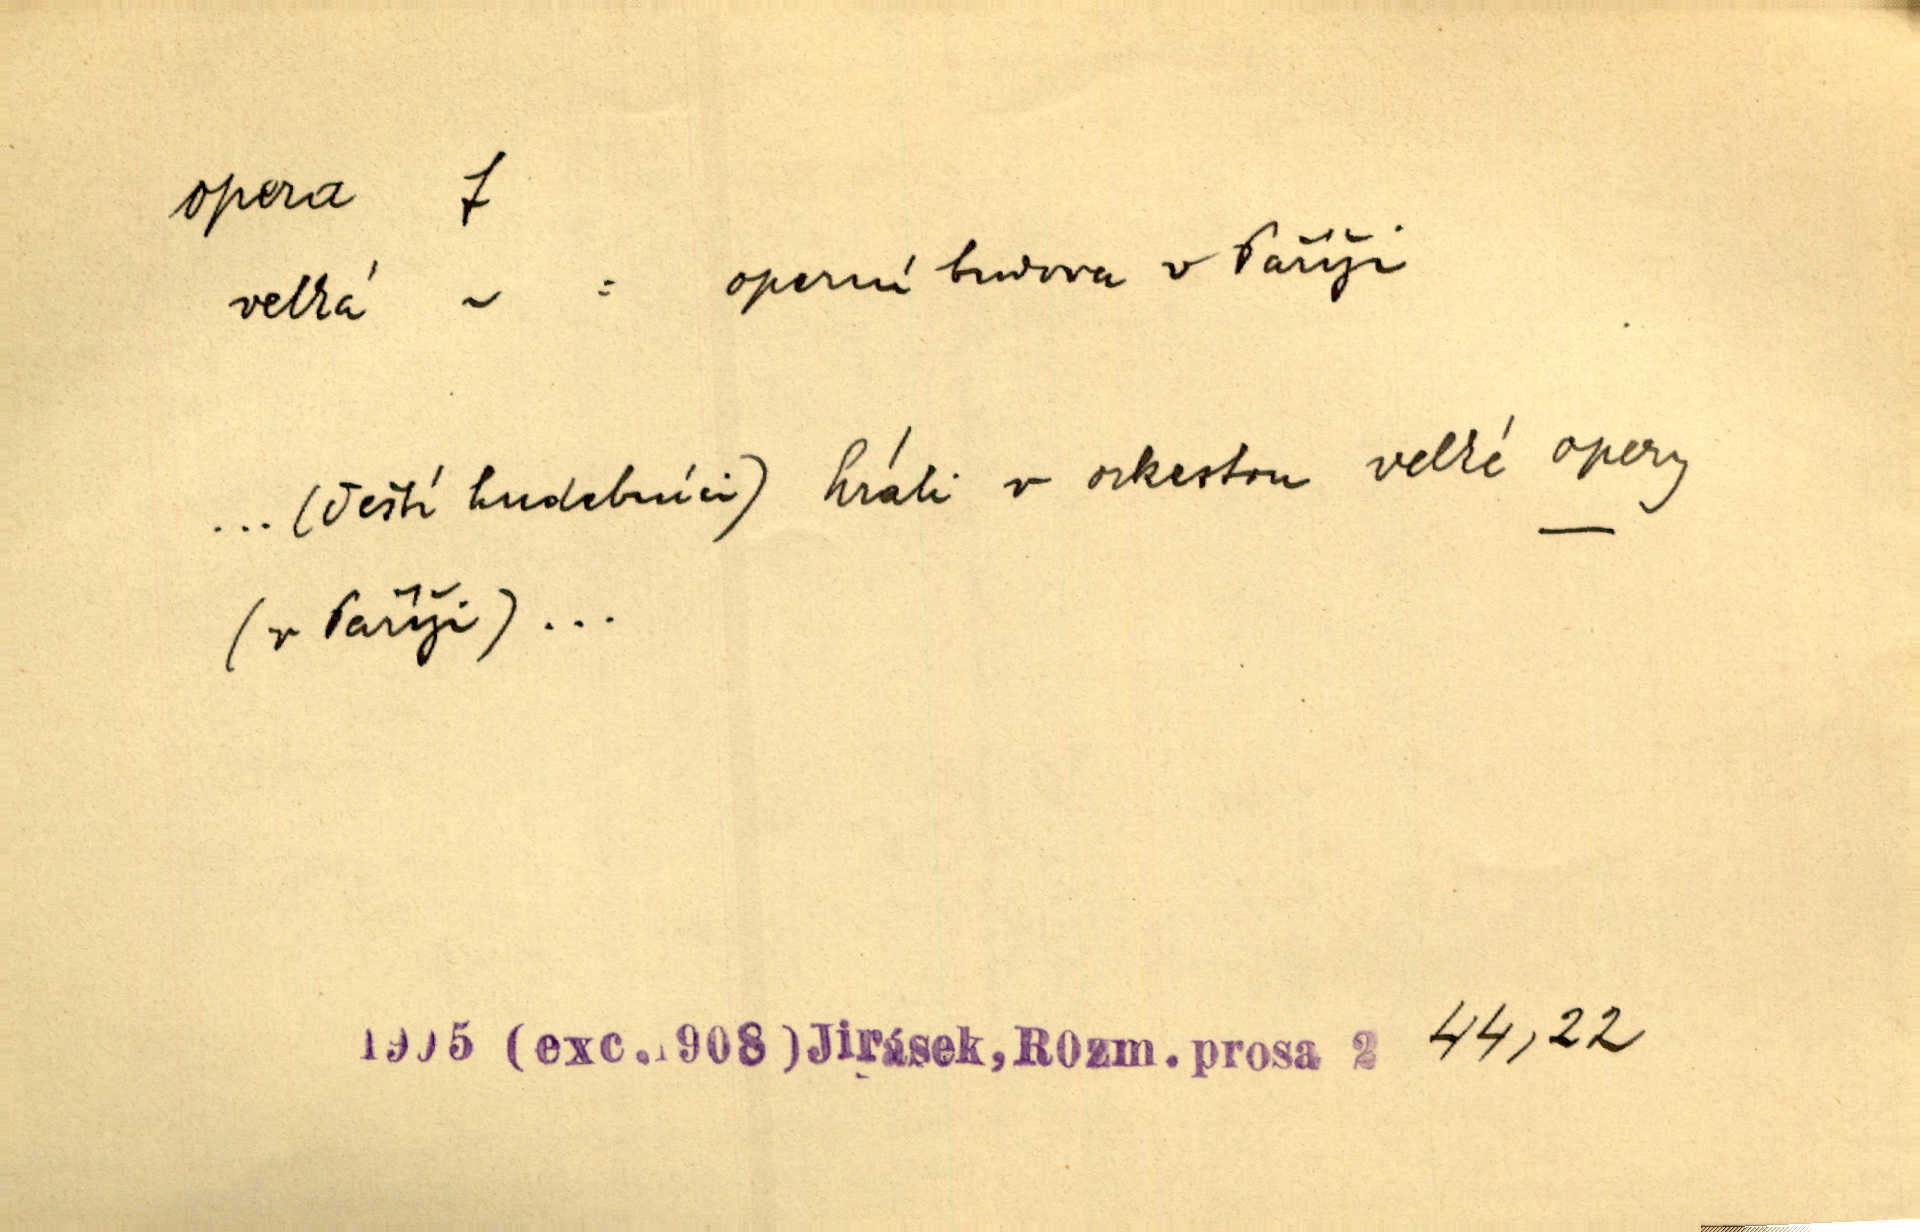 opera f
velká ~ = operní budova v Paříži
... (čeští hudebníci) hráli v orkestru velké opery
(v Paříži) ...
1905 (exc. 1908) Jirásek, ROzm. prosa 2 44,22